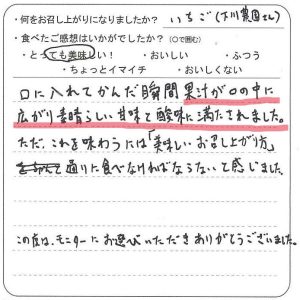 ・何をお召し上がりになりましたか? いちご(下川農園さん)
・食べたご感想はいかがでしたか?(○で囲む)
・とっても美味しい! ・おいしい ・ふつう
・ちょっとイマイチ ・おいしくない
口に入れてかんだ瞬間果汁が口の中に
広がり素晴らしい甘味と酸味に満たされました。
ただ、これを味わうには「美味しいお召し上がり方」
通りに食べなければならないと感じました。
この度は、モニターにお選びいただきありがとうございました。